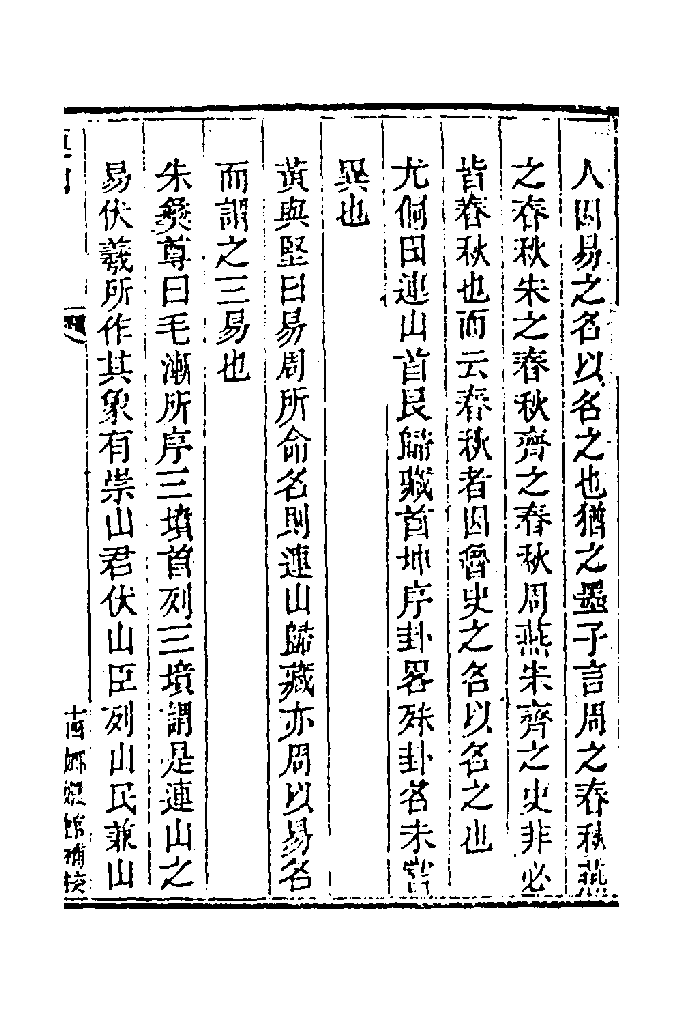 人因易之名以名之也猶之墨子言周之春秋燕
之春秋宋之春秋齊之春秋周燕宋齊之史非必
皆春秋也而云春秋者因魯史之名以名之也
尤侗曰連山首艮歸藏首坤序卦畧殊卦名未嘗
異也
黃與堅曰易周所命名則連山歸藏亦周以易名
而謂之三易也
朱彝尊曰毛漸所序三墳首列三墳謂是連山之
易伏羲所作其象有崇山君伏山臣列山民兼山